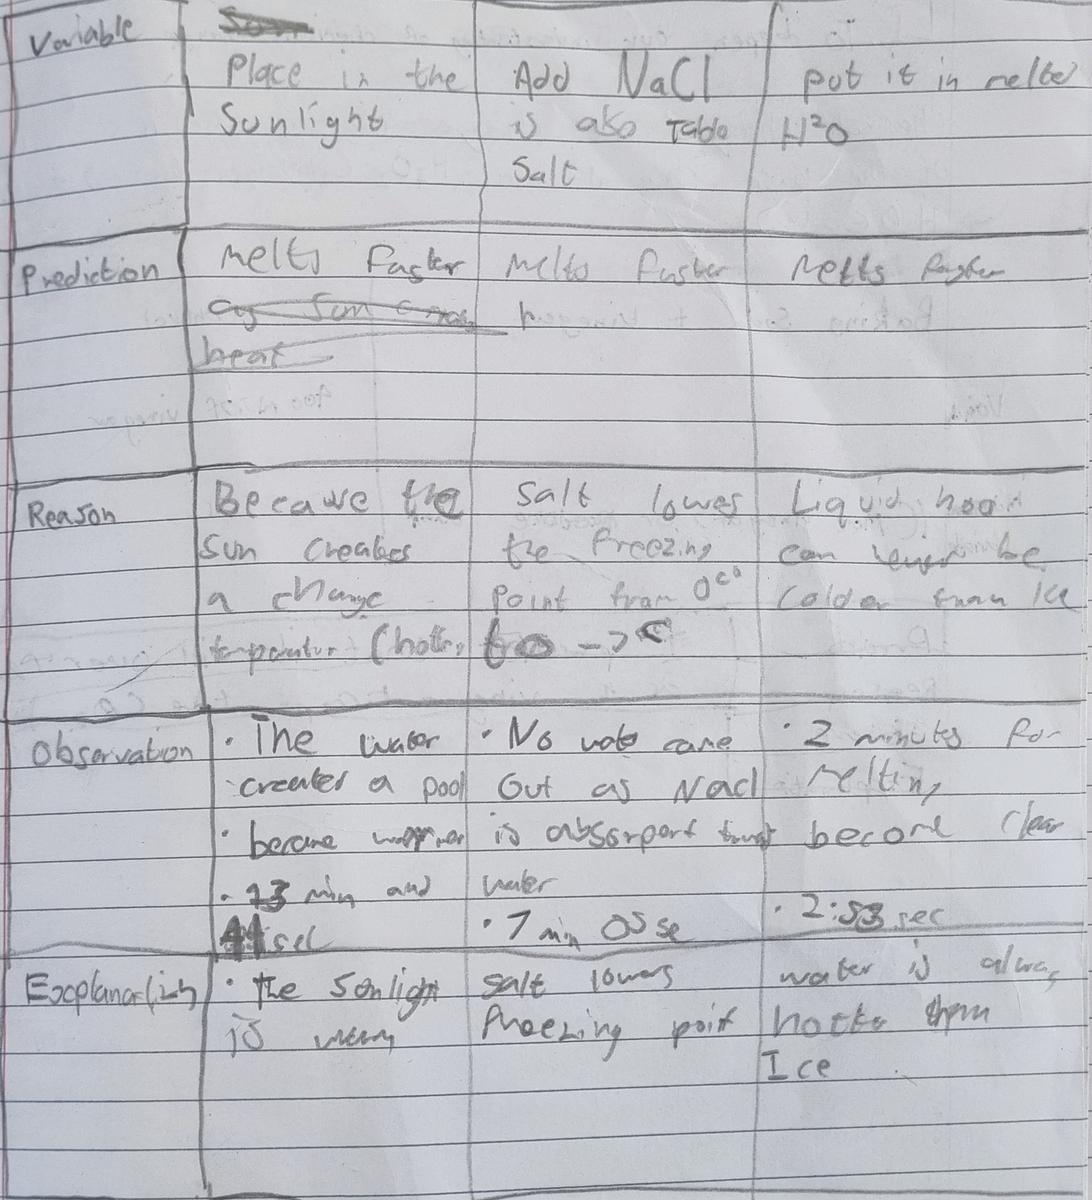 Variable
Place in the
Sunlight
Add NaCl
is also Table
Salt
put it in melted
H²O
Prediction
Melts Faster
Melts Faster
Melts Faster
heat
Reason
Because the
Sun creates
a change
(hotter)
Salt lowers
the freezing
Point from 0
Liquid
can never be
Colder than Ice
Observation
· The water
· creates a pool
· became warmer
· 13 min and
41 sec
· No water came
Out as Nacl
is
water
· 7 min 05 se
· 2 minutes for
melting
become Clear
· 2:53 sec
· the Sonlight
is warm
Salt lowers
freezing
water is
hotter than
Ice